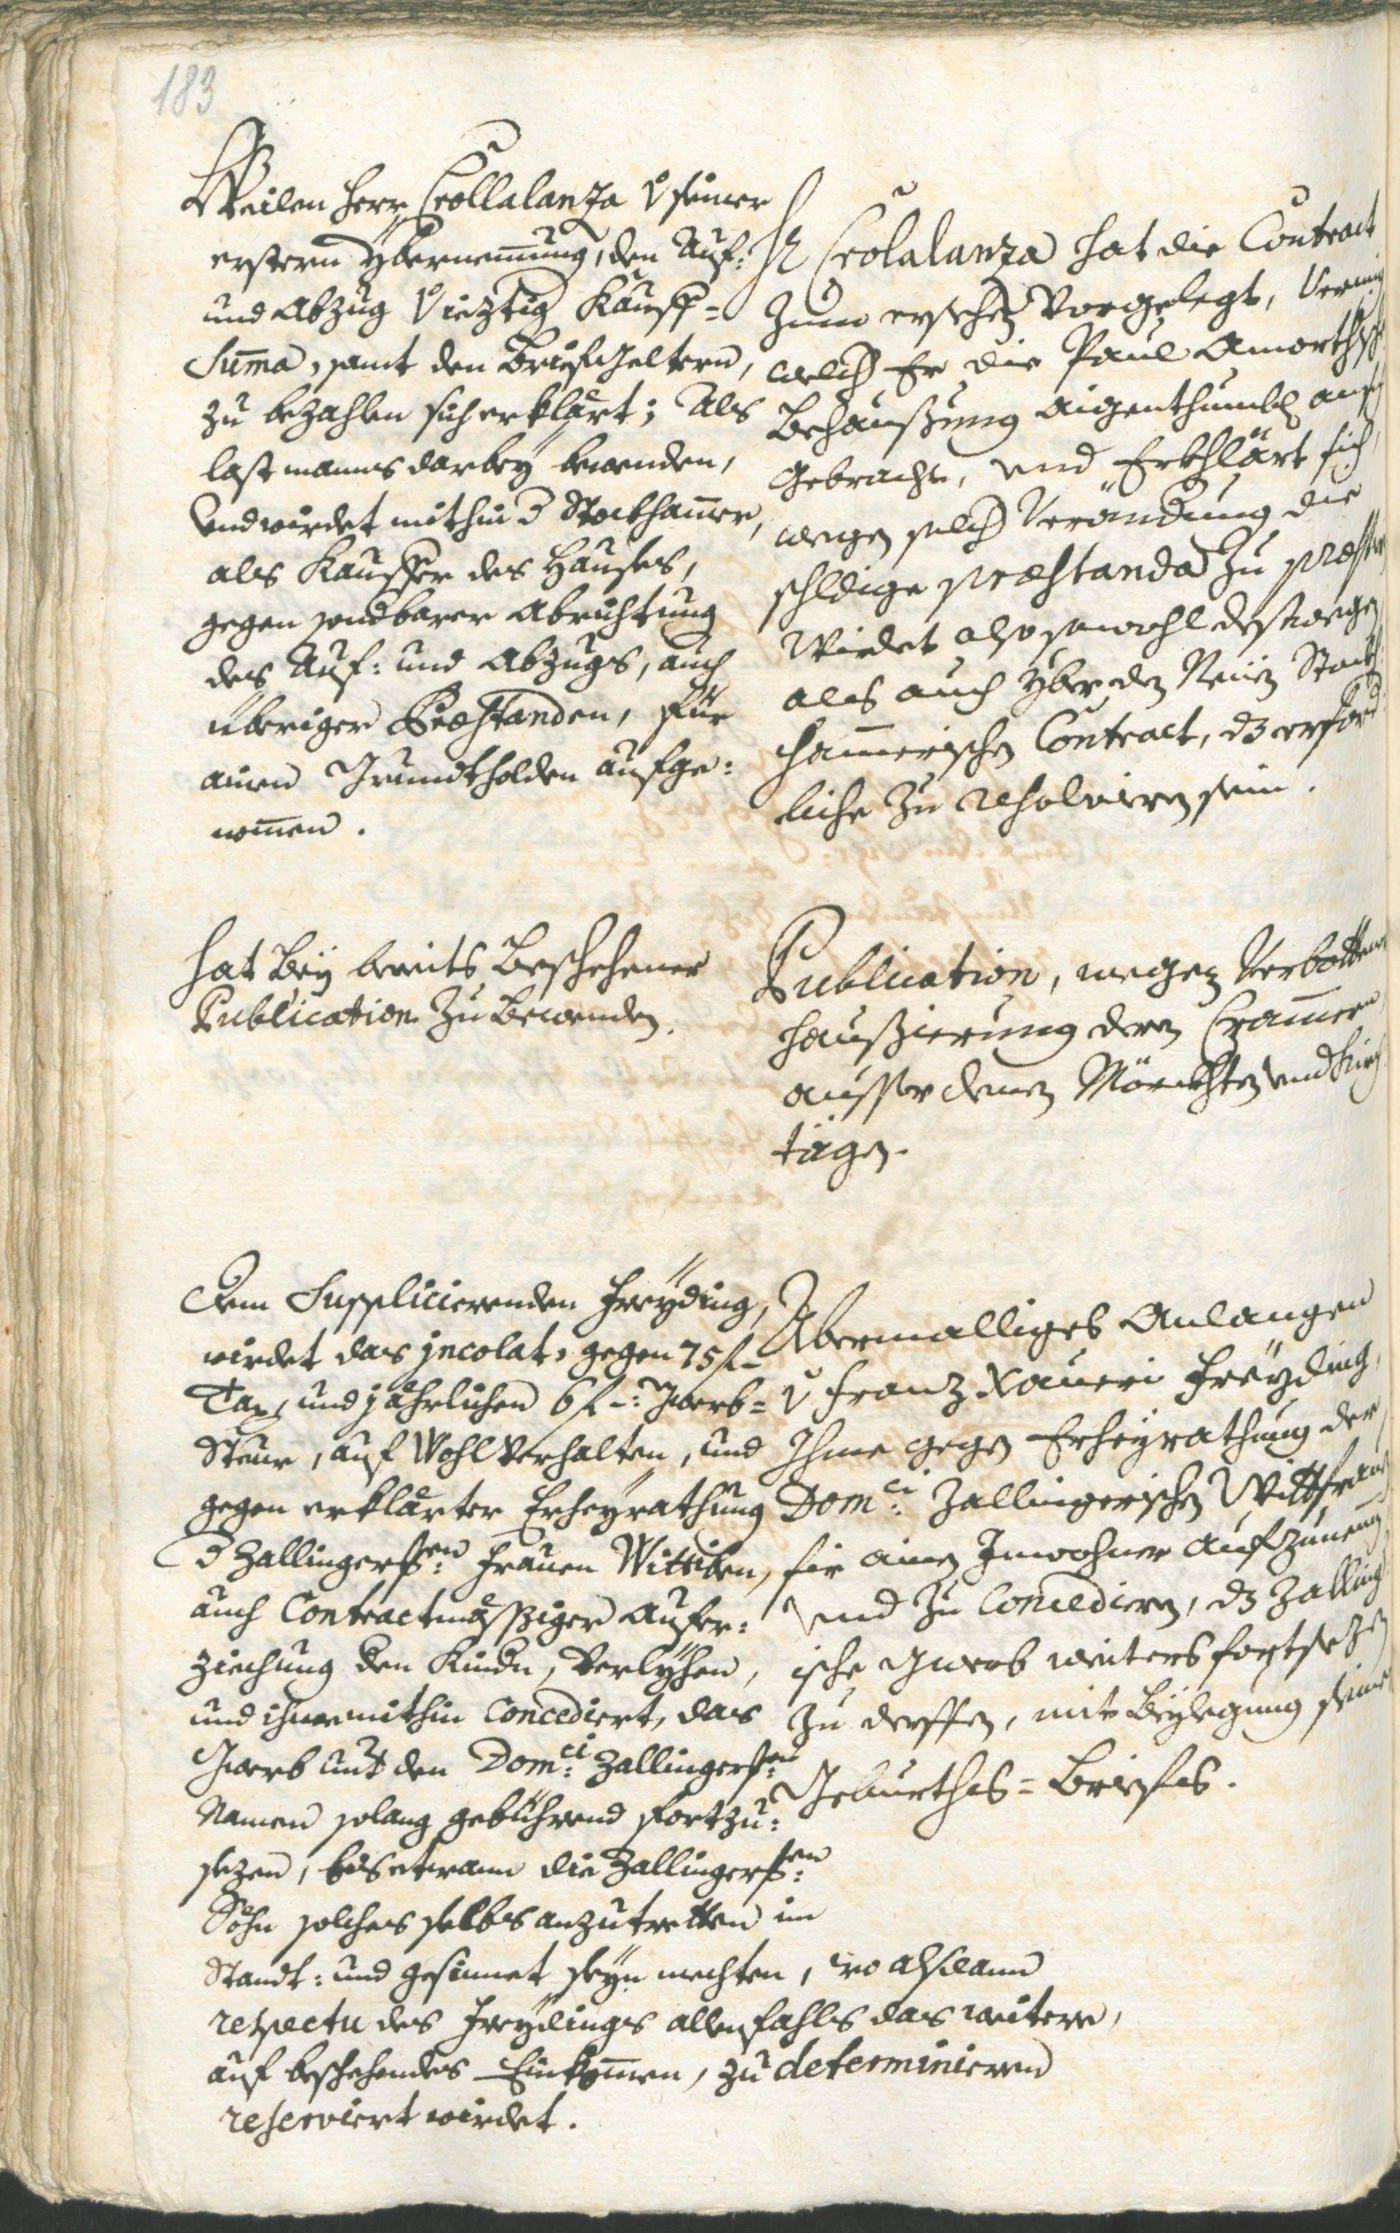 183
Weilen Herr Crollalanza v seiner
erstern Ybernem̄ung, den Auf:
und Abzug Kauff=
Sum̄a, samt den Briefgeltern,
zu bezahlen sich erklärt; Als
last mans darbey bewenden,
und wirdet mithin d Stockham̄er,
als Kauffer des Hauses,
gegen Abrichtung
des Auf: und Abzugs, auch
übriger Præstanden, für
ainen Grundtholden aufge:
nom̄en.
Hr Crolalanza hat die Contract
zum ersehen Vorgelegt,
welch Er die Paul Amorthische
Behaußung aigenthumbl an sich
gebracht, und Erkhlärt sich,
wegen solch Veränderung die
schldige præstanda zu
Wirdet also sowohl desswegen
als auch yber den Neüen Stockh
ham̄erischen Contract, dz erford
liche zu resolvieren sein.
Hat bey bereits beschehener
Publication zu bewenden.
Publication, wegen Verbottener
Haußierung deren Cram̄eren
ausser denen Märckhten und Kirch
tägen.
Dem Supplicierenden Freyding,
wirdet das jncolat, gegen 75 f
Tax, und jährlichen 6 f: Gwerb=
Steur, auf Wohlverhalten, und
gegen erklärter Erheyrathung
d Zallingerischen: Frauen Wittiben,
auch Contractmässiger Aufer:
ziechung den Kindn, Verlyhen,
und ihme mithin Concediert, das
Gwerb unt den Dom:ci Zallingerischen
Namen solang gebührend fortzu:
sezen, bis etwann die Zallingerischen:
Söhn solches selbs anzutretten im
Standt: und gesinnet seyn mechten, wo alsdann
respectu des Freydings allenfahls das weitere,
auf beschehendes Einkom̄en, zu determinieren
reserviert wirdet.
Abermalliges Anlangen
v Franz Xaveri Freyding,
Ihme gegen Erheyrathung der
Dom:ci Zallingerischen Wittfrauen
für ainen Inwohner aufzunem̄en
und zu Concedieren, dz Zalling
ische Gwerb weiters fortsezen
zu derffen, mit Beylegung seines
Geburths=Briefes.